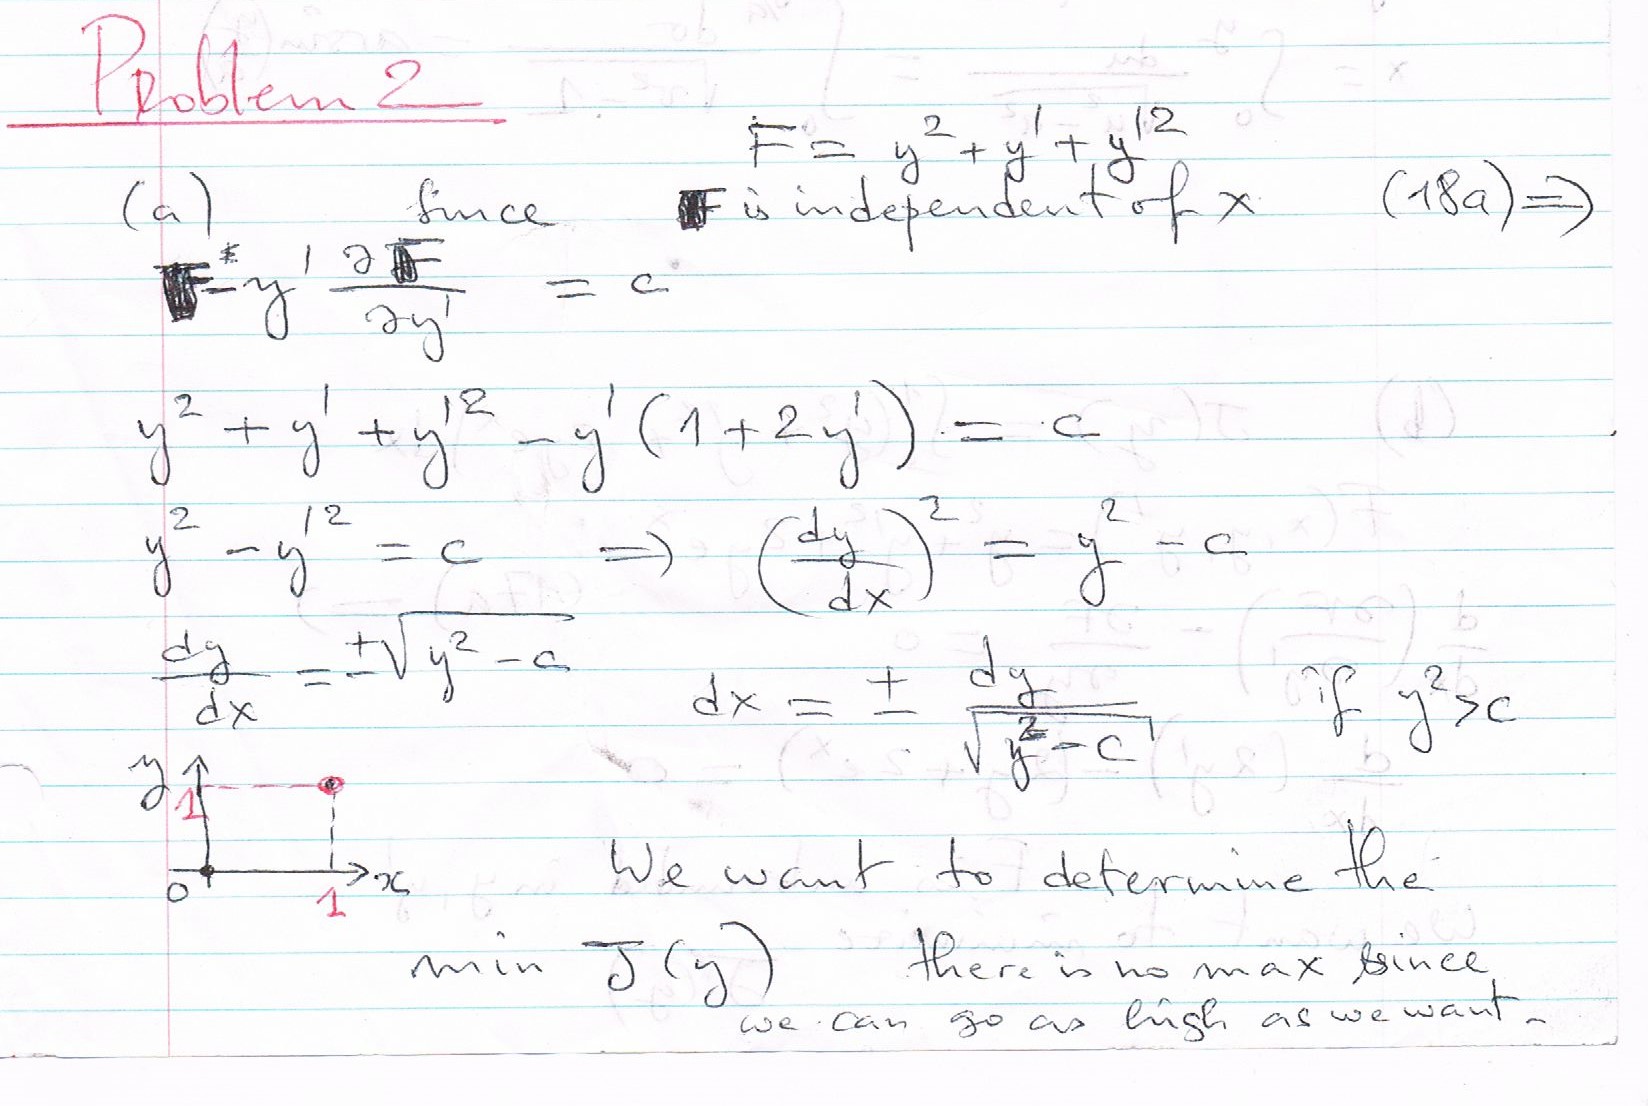 Problem 2
F = y² + y' + y'²
(a) Since F is independent of x (18a) ⇒
F - y' ∂F/∂y' = c
y² + y' + y'² - y' (1 + 2y') = c
y² - y'² = c ⇒ (dy/dx)² = y² - c
dy/dx = ±√(y² - c) dx = ± dy/√(y² - c) if y² > c
y
1
0 x
1
We want to determine the
min J(y) there is no max since
we can go as high as we want.